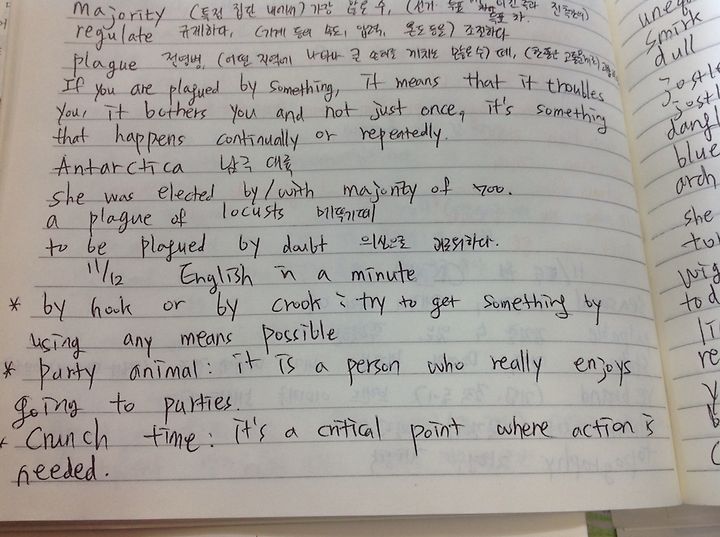 majority (특정 집단 내에서) 가장 많은 수, (선거
regulate 규제하다, (기계 등의 속도, 압력, 온도 등을) 조절하다
plague 전염병, (어떤 지역에 나타나 큰 피해를 끼치는 많은 수) 떼,
If you are plagued by something, it means that it troubles
you, it bothers you and not just once, it's something
that happens continually or repeatedly.
Antarctica 남극 대륙
she was elected by/with majority of 700.
a plague of locusts 메뚜기떼
to be plagued by doubt 의심으로 괴로워하다.
11/12 English in a minute
* by hook or by crook : try to get something by
using any means possible
* party animal : it is a person who really enjoys
going to parties.
* Crunch time : it's a critical point where action is
needed.
smirk
dull
jostle
dangl
blue
arch
she
wig
tod
li
re